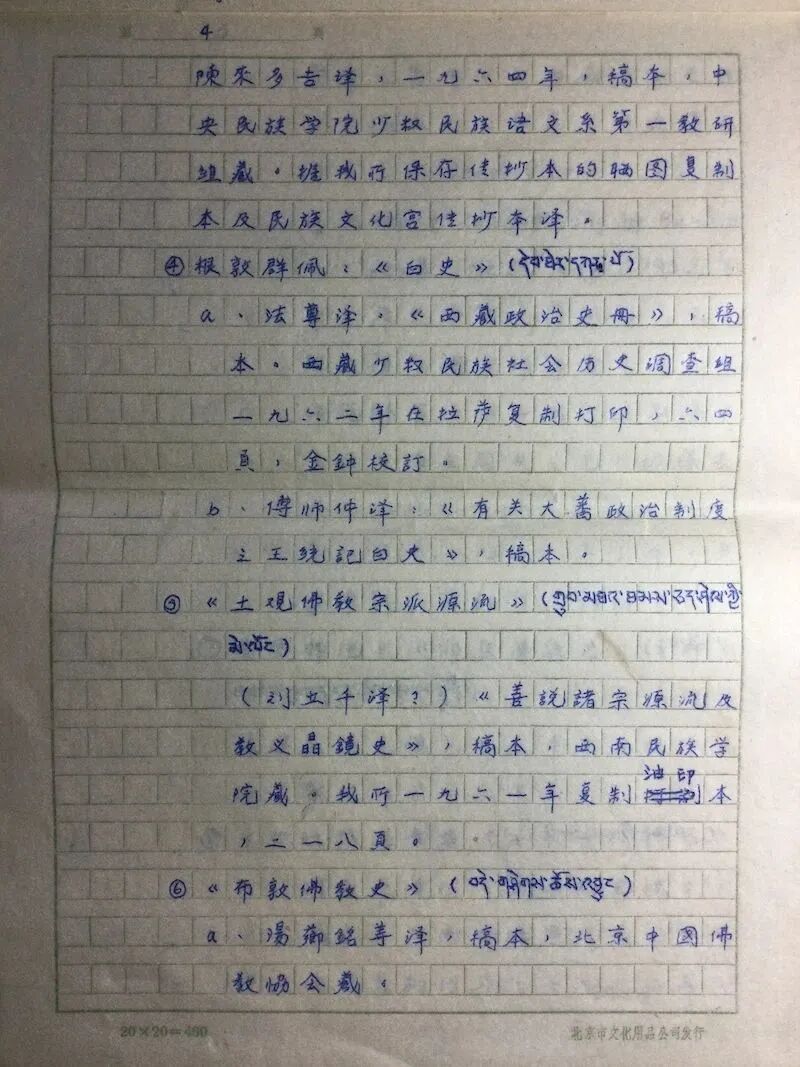 第 4 頁
陳來多吉译，一九六四年，稿本，中
央民族学院少数民族语文系第一教研
组藏。据我所保存传抄本的晒图复制
本及民族文化宫传抄本译。
④根敦群佩：《白史》(དེབ་ཐེར་དཀར་པོ)
a、法尊译：《西藏政治史册》，稿
本。西藏少数民族社会历史调查组
一九六二年在拉萨复制打印，六四
頁，金鈡校訂。
b、傅师仲译：《有关大蕃政治制度
之王统記白史》，稿本。
⑤《土观佛教宗派源流》(གྲུབ་མཐའ་ཐམས་ཅད་ཤེལ་གྱི་
མེ་ལོང)
(刘立千译？)《善説諸宗源流及
教义晶鏡史》，稿本，西南民族学
院藏。我所一九六一年复制油印本
，二一八頁。
⑥《布敦佛教史》(བདེ་གཤེགས་ཆོས་འབྱུང)
a、湯薌銘等译，稿本，北京中國佛
教協会藏。
20×20=400 北京市文化用品公司发行